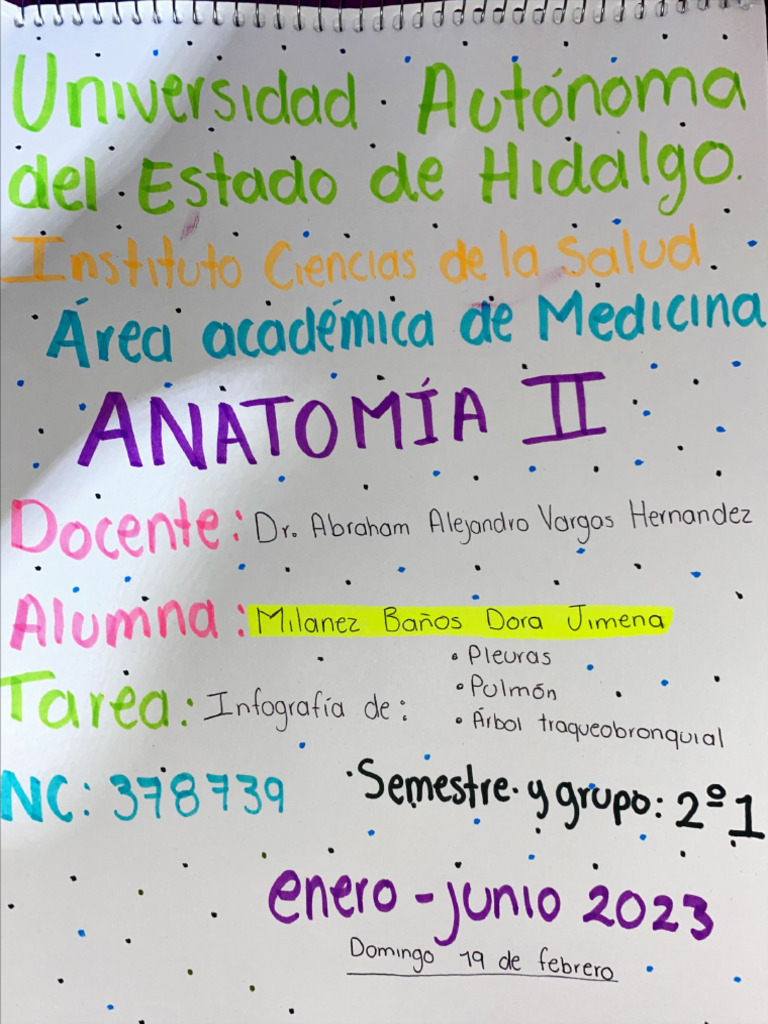 Universidad Autónoma
del Estado de Hidalgo.
Instituto Ciencias de la Salud
Área académica de Medicina
ANATOMÍA II
Docente: Dr. Abraham Alejandro Vargas Hernandez
Alumna: Milanez Baños Dora Jimena
Tarea: Infografía de:
• Pleuras
• Pulmón
• Árbol traqueobronquial
NC: 378739
Semestre y grupo: 2º 1
enero - junio 2023
Domingo 19 de febrero